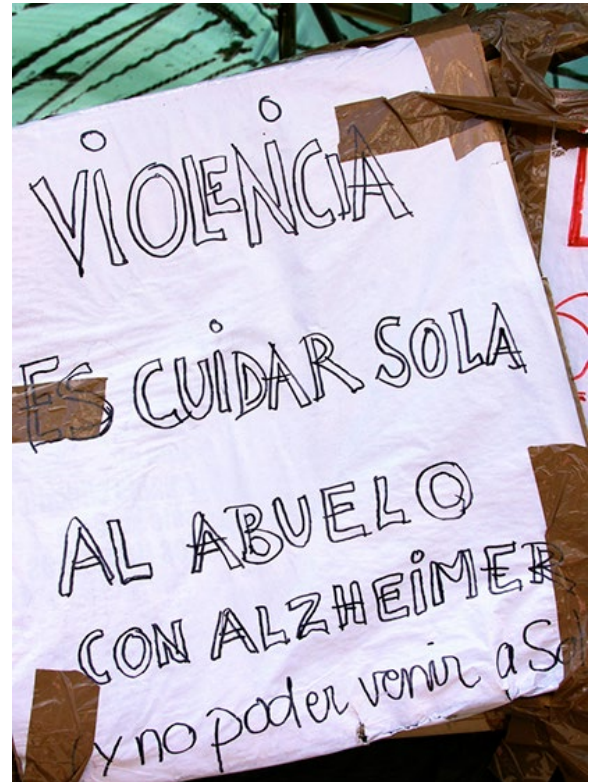 VIOLENCIA
ES CUIDAR SOLA
AL ABUELO
CON ALZHEIMER
y no poder venir a Sol